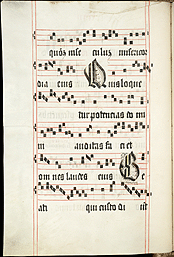 quō‍s in se culuz misericor
dia eius Quis loque
tur potencias do mi
ni auditas fa ci et
om nes laudes eius Be
ati qui custo di ūt